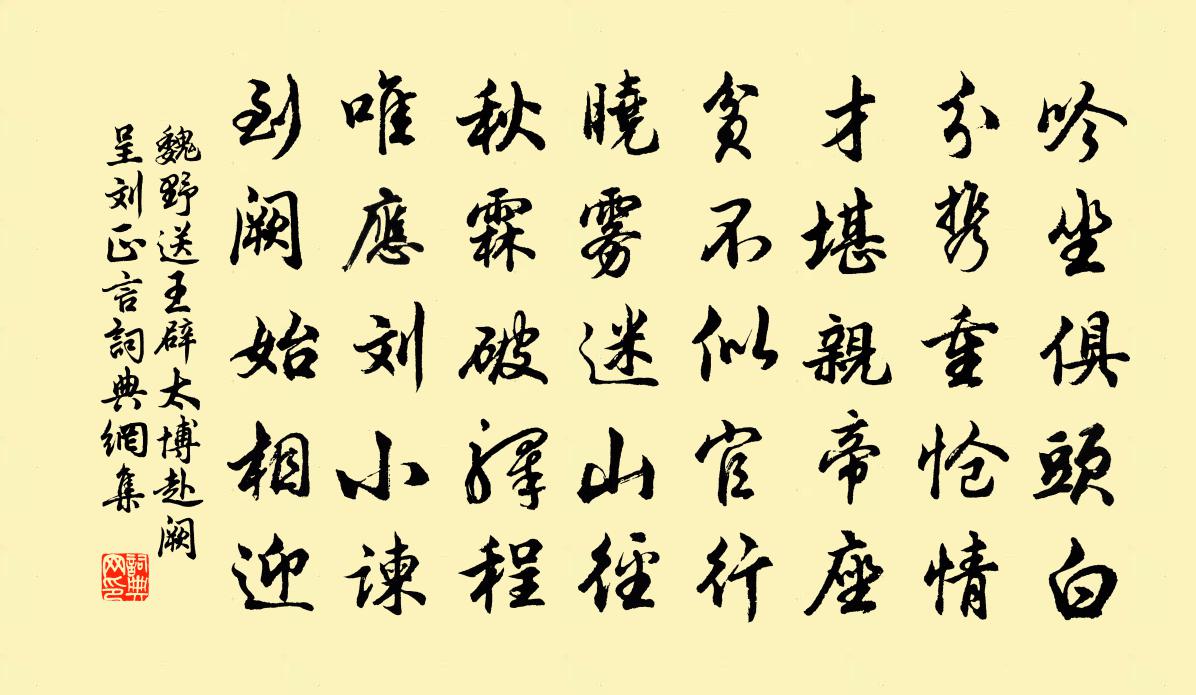 吟坐俱頭白
分携重愴情
才堪親帝座
貧不似官行
曉雾迷山徑
秋霖破驛程
唯應刘小諫
到阙始相迎
魏野送王辟太博赴阙
呈刘正言詞典網集
詞典网印